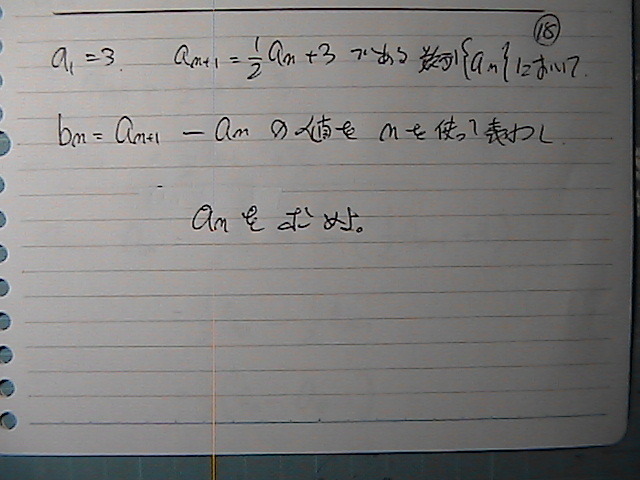 ⑱
a₁=3. aₙ₊₁=½aₙ+3 である 数列{aₙ}において.
bₙ=aₙ₊₁-aₙ の値を nを使って表わし
aₙを求めよ。